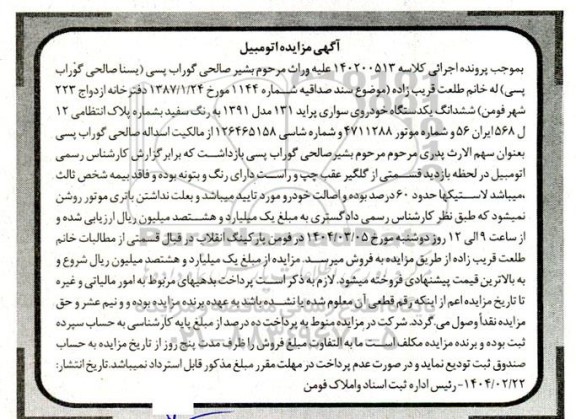 آگهی مزایده اتومبیل
بموجب پرونده اجرائی کلاسه ۱۴۰۲۰۰۵۱۳ علیه وراث مرحوم بشیر صالحی گوراب پسی (یسنا صالحی گوراب
پسی) له خانم طلعت قریب زاده (موضوع سند صداقیه شماره ۱۱۴۴ مورخ ۱۳۸۷/۱/۲۴ دفترخانه ازدواج ۲۲۳
شهر فومن) ششدانگ یکدستگاه خودروی سواری پراید ۱۳۱ مدل ۱۳۹۱ به رنگ سفید بشماره پلاک انتظامی ۱۲
ل ۵۶۸ ایران ۵۶ و شماره موتور ۴۷۱۱۲۸۸ و شماره شاسی ۱۲۶۴۶۵۱۵۸ از مالکیت اسداله صالحی گوراب پسی
بعنوان سهم الارث پدری مرحوم مرحوم بشیر صالحی گوراب پسی بازداشت که برابر گزارش کارشناس رسمی
اتومبیل در لحظه بازدید قسمتی از گلگیر عقب چپ و راست دارای رنگ و بتونه بوده و فاقد بیمه شخص ثالث
میباشد لاستیکها حدود ۶۰ درصد بوده و اصالت خودرو مورد تایید میباشد و بعلت نداشتن باتری موتور روشن
نمیشود که طبق نظر کارشناس رسمی دادگستری به مبلغ یک میلیارد و هشتصد میلیون ریال ارزیابی شده و
از ساعت ۹ الی ۱۲ روز دوشنبه مورخ ۱۴۰۴/۰۳/۰۵ در فومن پارکینگ انقلاب در قبال قسمتی از مطالبات خانم
طلعت قریب زاده از طریق مزایده به فروش میرسد. مزایده از مبلغ یک میلیارد و هشتصد میلیون ریال شروع و
به بالاترین قیمت پیشنهادی فروخته میشود. لازم به ذکر است پرداخت بدهیهای مربوط به امور مالیاتی و غیره
تا تاریخ مزایده اعم از اینکه رقم قطعی آن معلوم شده یا نشده باشد به عهده برنده مزایده بوده و نیم عشر و حق
مزایده نقداً وصول می‌گردد. شرکت در مزایده منوط به پرداخت ده درصد از مبلغ پایه کارشناسی به حساب سپرده
ثبت بوده و برنده مزایده مکلف است ما به التفاوت مبلغ فروش را ظرف مدت پنج روز از تاریخ مزایده به حساب
صندوق ثبت تودیع نماید و در صورت عدم پرداخت در مهلت مقرر مبلغ مذکور قابل استرداد نمیباشد. تاریخ انتشار:
۱۴۰۴/۰۲/۲۲- رئیس اداره ثبت اسناد واملاک فومن